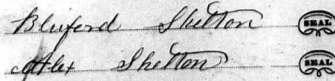 Bluford Shelton SEAL
Alex Shelton SEAL